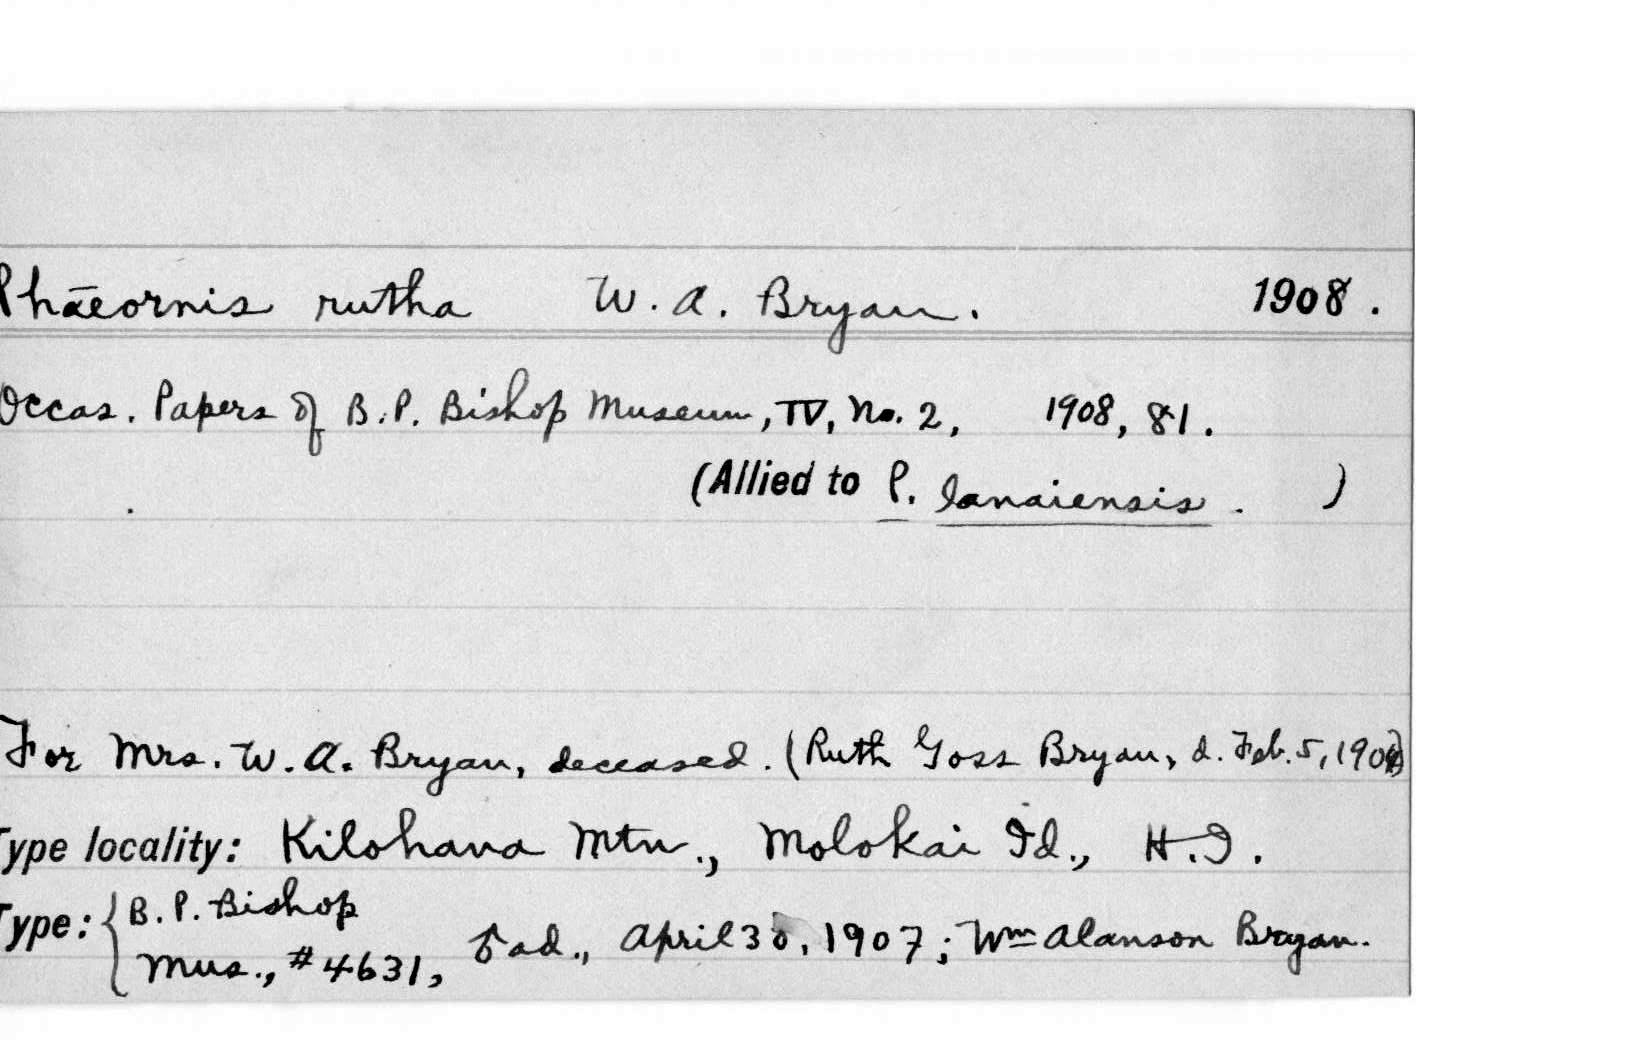 Phāeornis rutha W. A. Bryan. 1908.
Occas. Papers of B. P. Bishop Museum, IV, No. 2, 1908, 81.
(Allied to P. lanaiensis. )
For Mrs. W. A. Bryan, deceased. (Ruth Goss Bryan, d. Feb. 5,
Type locality: Kilohana Mtn., Molokai Id., H. I.
Type: { B. P. Bishop
Mus., #4631, ad., April 30, 1907; Wm Alanson Bryan.